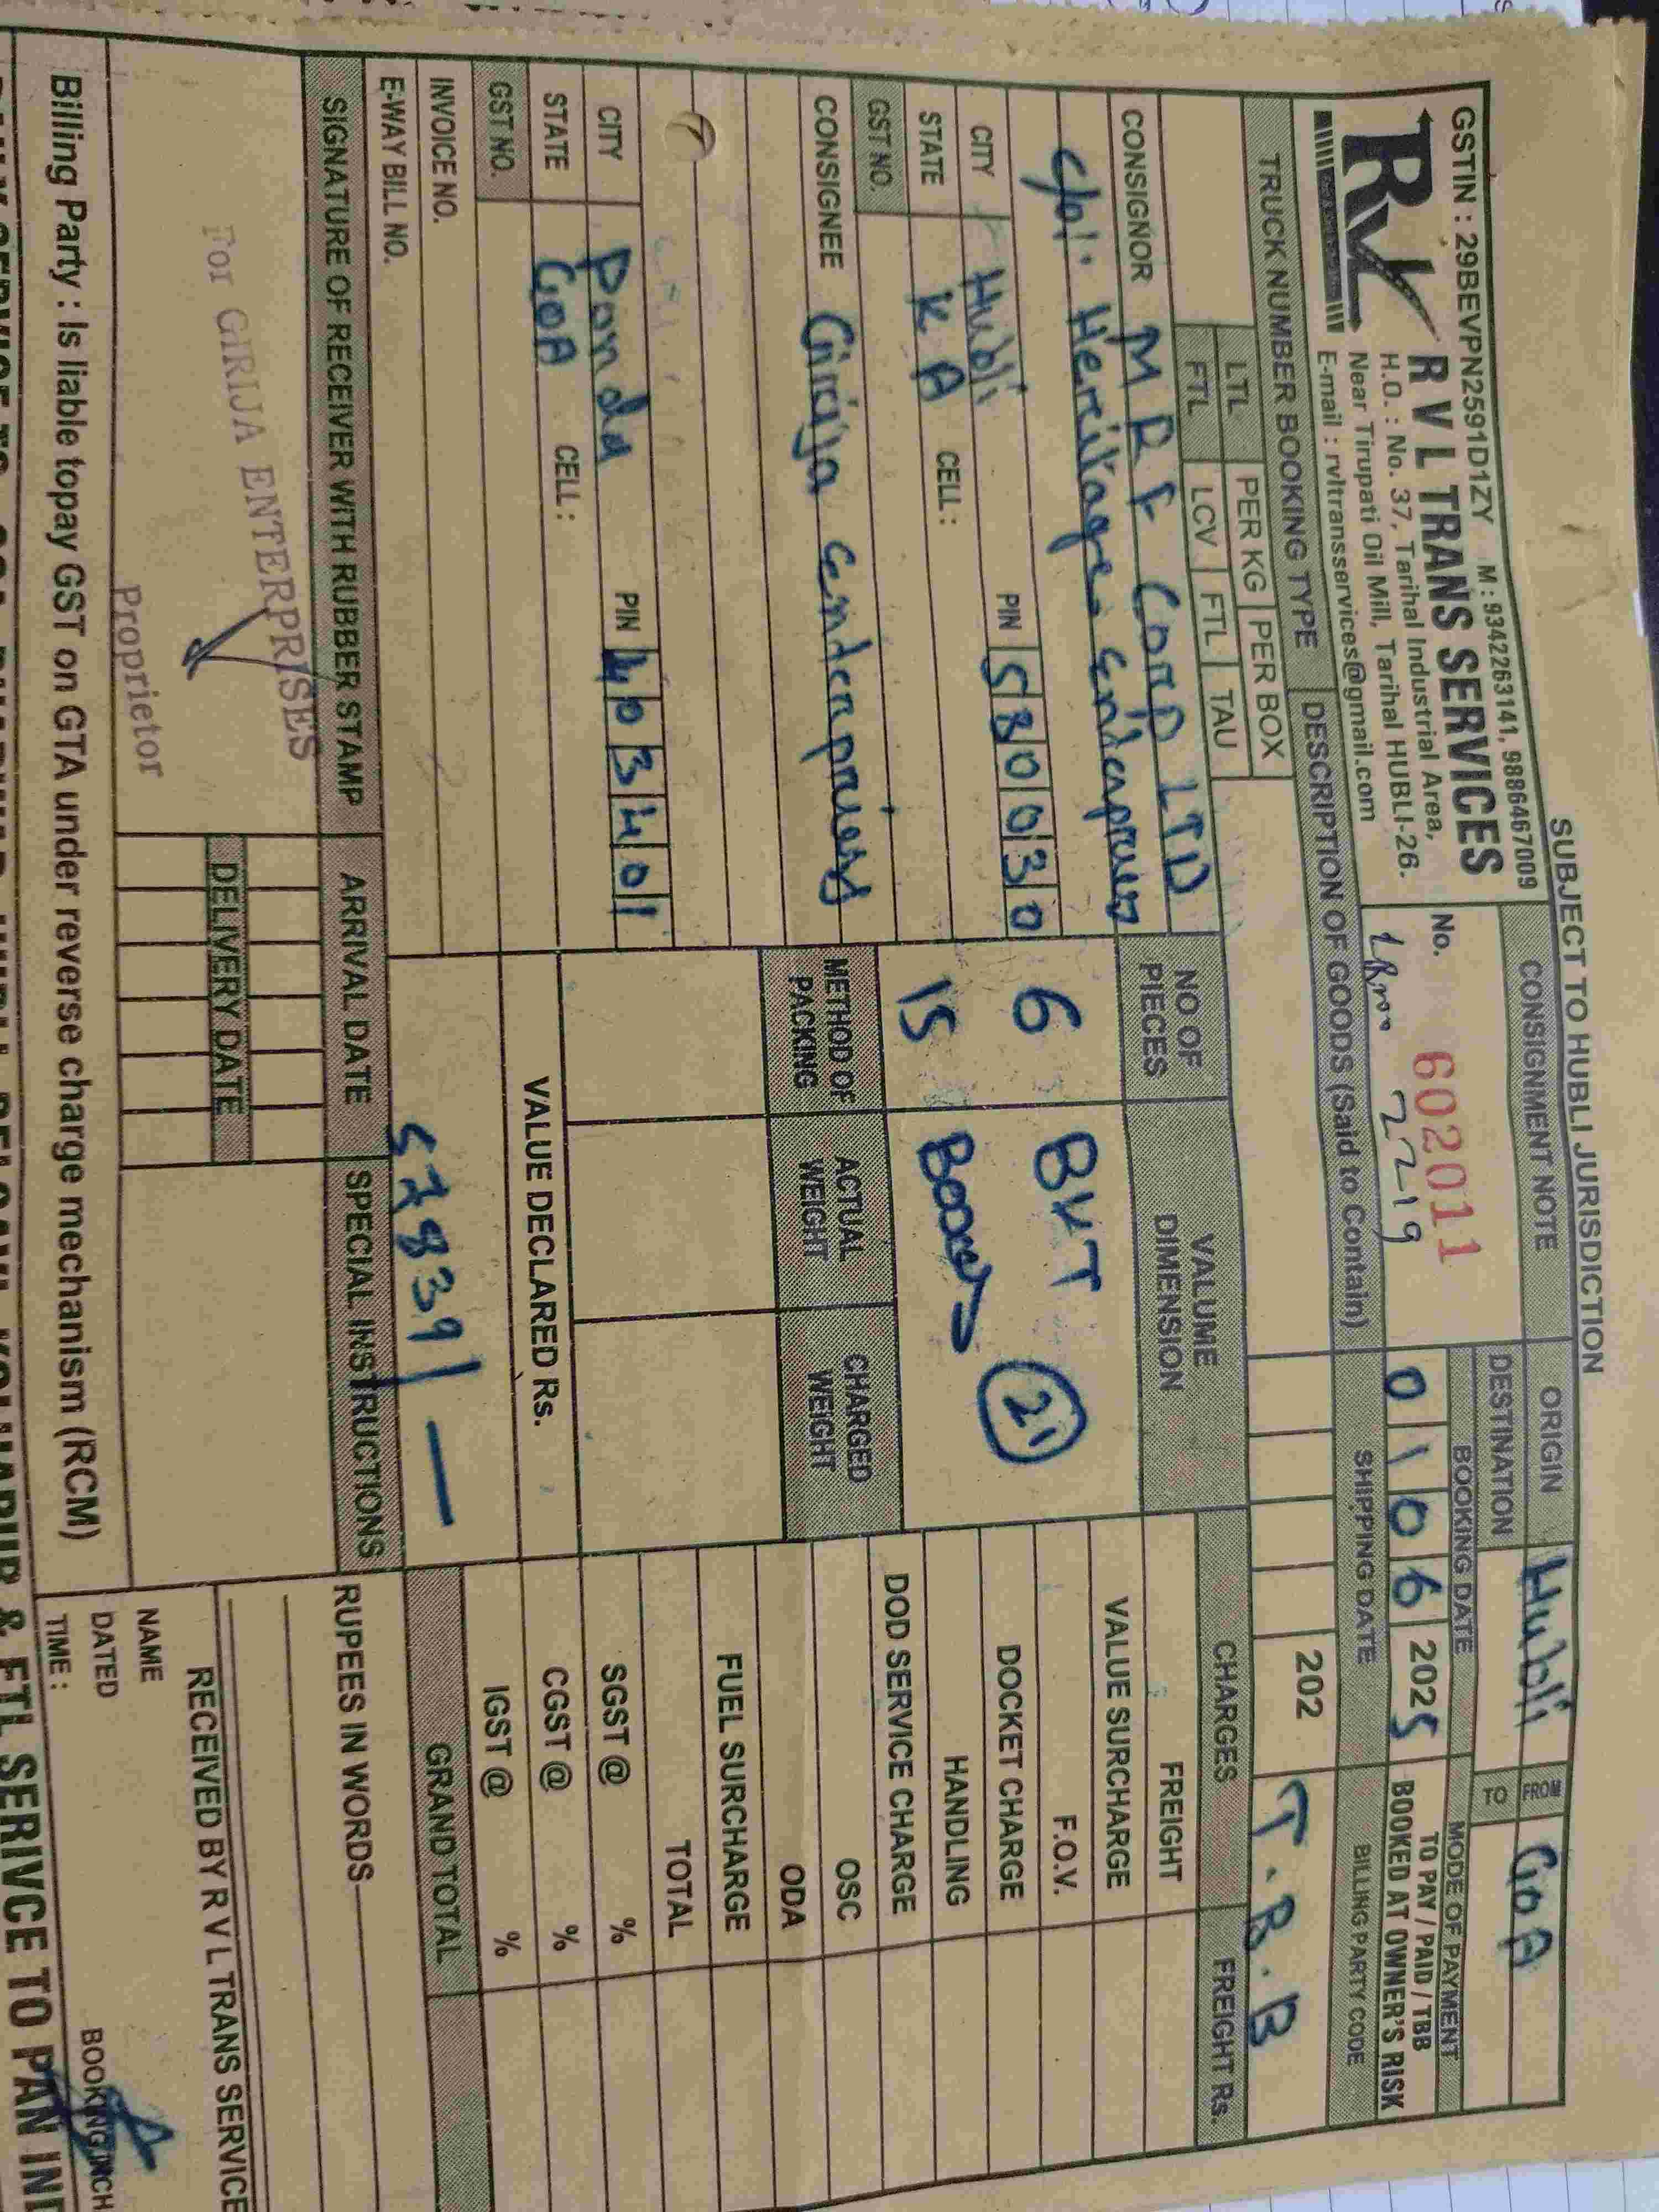 SUBJECT TO HUBLI JURISDICTION
GSTIN : 29BEVPN2591D1ZY M : 9342263141, 9886467009
RVL
R V L TRANS SERVICES
H.O. : No. 37, Tarihal Industrial Area,
Near Tirupati Oil Mill, Tarihal HUBLI-26.
E-mail : rvltransservices@gmail.com
CONSIGNMENT NOTE
No. 602011
LRno 2219
ORIGIN Hubli FROM GOA
DESTINATION TO
BOOKING DATE MODE OF PAYMENT
0 1 0 6 2025 TO PAY / PAID / TBB
BOOKED AT OWNER'S RISK
SHIPPING DATE BILLING PARTY CODE
202 T.B.B
TRUCK NUMBER BOOKING TYPE DESCRIPTION OF GOODS (Said to Contain)
LTL PER KG PER BOX
FTL LCV FTL TAU
CONSIGNOR MRF Corp LTD
c/o/. Heritage Enterprises
CITY Hubli PIN 580030
STATE KA CELL :
GST NO.
CONSIGNEE Girija Enterprises
CITY Ponda PIN 403401
STATE GOA CELL :
GST NO.
INVOICE NO.
E-WAY BILL NO.
NO OF PIECES VALUME DIMENSION
6 BKT
15 Boxes 21
METHOD OF PACKING ACTUAL WEIGHT CHARGED WEIGHT
VALUE DECLARED Rs.
57839/-
CHARGES FREIGHT Rs.
FREIGHT
VALUE SURCHARGE
F.O.V.
DOCKET CHARGE
HANDLING
DOD SERVICE CHARGE
OSC
ODA
FUEL SURCHARGE
TOTAL
SGST @ %
CGST @ %
IGST @ %
GRAND TOTAL
SIGNATURE OF RECEIVER WITH RUBBER STAMP ARRIVAL DATE SPECIAL INSTRUCTIONS
DELIVERY DATE
For GIRIJA ENTERPRISES
Proprietor
RUPEES IN WORDS
RECEIVED BY R V L TRANS SERVICE
NAME
DATED
TIME :
BOOKING
Billing Party : Is liable topay GST on GTA under reverse charge mechanism (RCM)
& FTL SERIVCE TO PAN